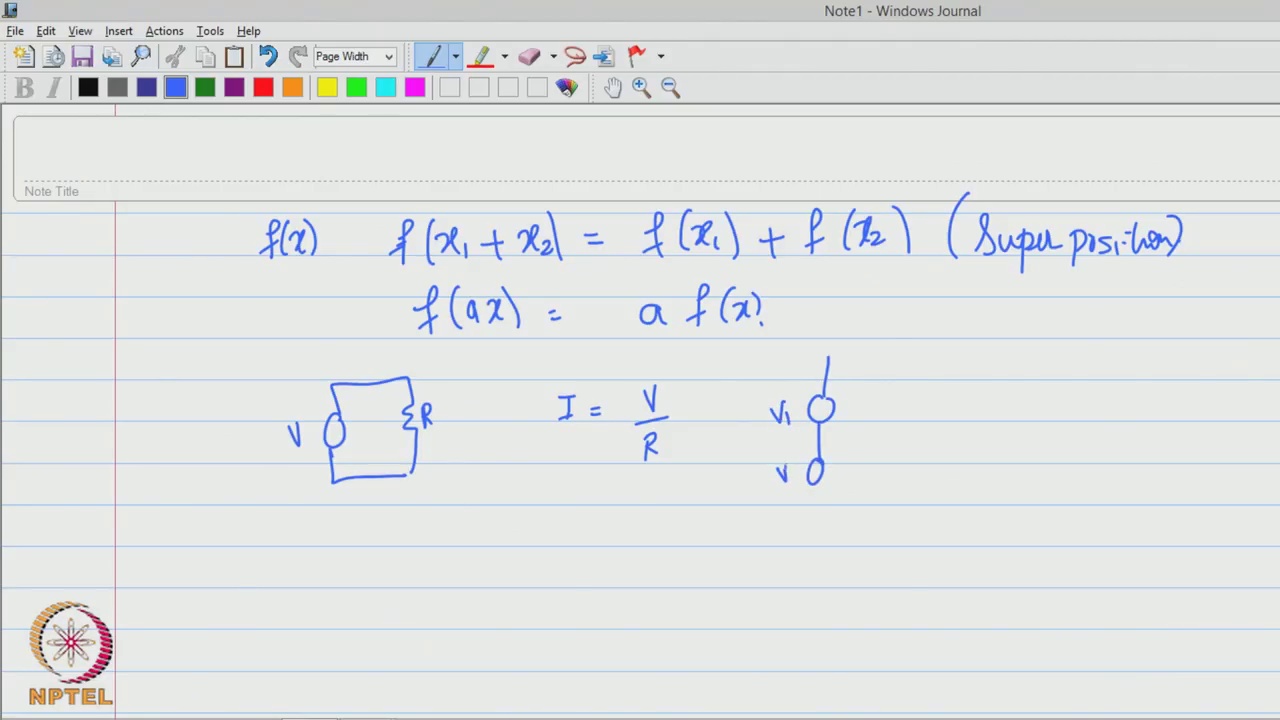 Note1 - Windows Journal
File Edit View Insert Actions Tools Help
Page Width
B I
Note Title
f(x) f(x₁ + x₂) = f(x₁) + f(x₂) (Superposition)
f(ax) = a f(x)
V R I = V/R V₁
V
NPTEL